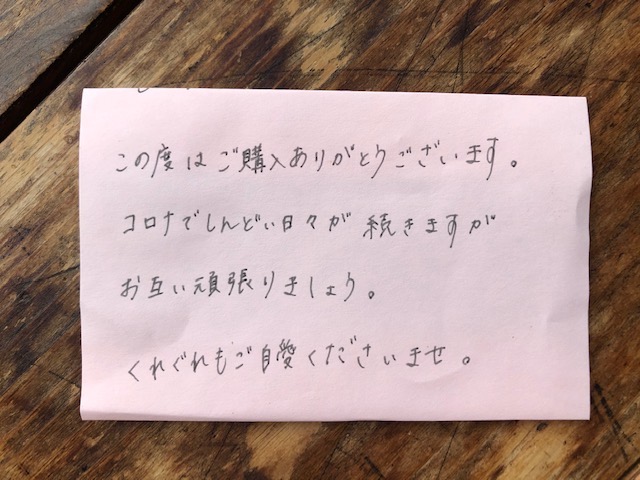 この度はご購入ありがとうございます。
コロナでしんどい日々が続きますが
お互い頑張りましょう。
くれぐれもご自愛くださいませ。